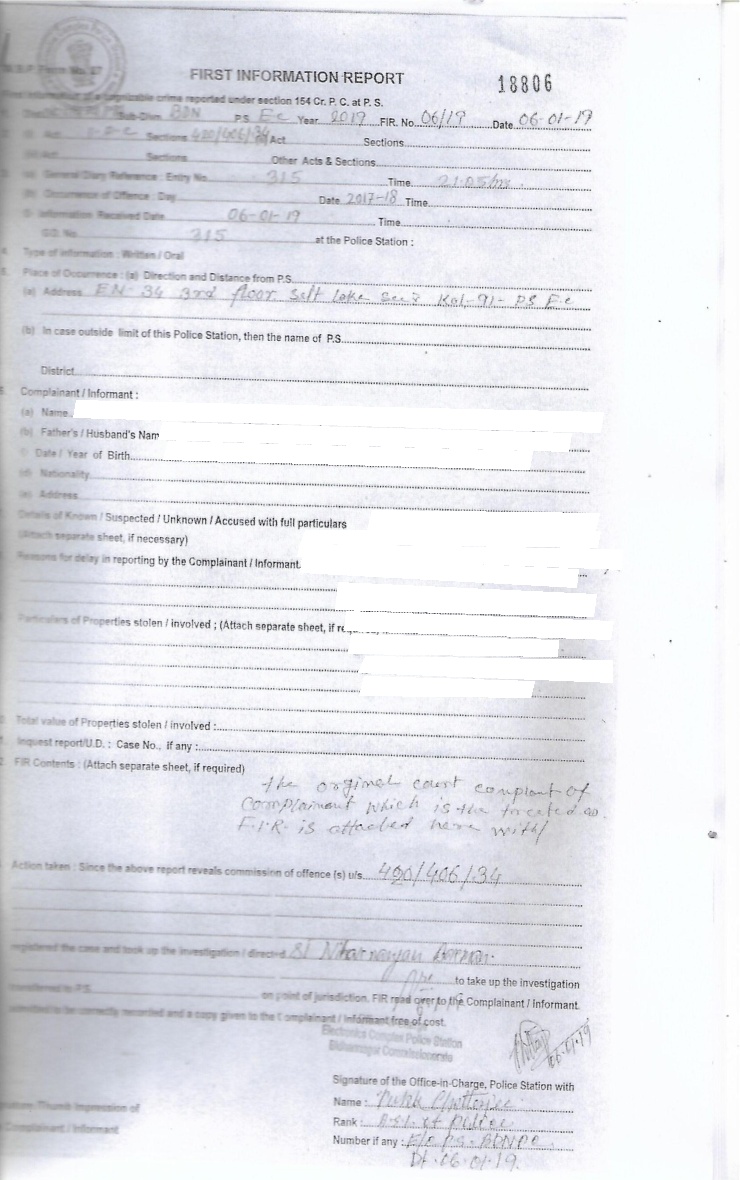 FIRST INFORMATION REPORT
18806
cognizable crime reported under section 154 Cr. P. C. at P. S.
Sub-Divn. BDN P.S. E.c Year 2019 FIR. No. 06/19 Date 06-01-19
Act Sections 420/406/34 Act Sections
Sections Other Acts & Sections
(a) General Diary Reference : Entry No. 315 Time 21.05 hrs.
(b) Occurrence of Offence : Day Date 2017-18 Time
Information Received Date 06-01-19 Time
G.D. No. 315 at the Police Station :
4. Type of information : Written / Oral
5. Place of Occurrence : (a) Direction and Distance from P.S.
(a) Address EN-34 3rd floor Salt Lake Sec-5 Kol-91- PS E.c
(b) In case outside limit of this Police Station, then the name of P.S.
District
Complainant / Informant :
(a) Name
(b) Father's / Husband's Nam
Date / Year of Birth
(d) Nationality
(e) Address
Details of Known / Suspected / Unknown / Accused with full particulars
(Attach separate sheet, if necessary)
Reasons for delay in reporting by the Complainant / Informant.
Particulars of Properties stolen / involved ; (Attach separate sheet, if re
Total value of Properties stolen / involved :
Inquest report/U.D. : Case No., if any :
FIR Contents : (Attach separate sheet, if required)
the orginal court complant of
Complainent which is the treated as
F.I.R. is attached here with/
Action taken : Since the above report reveals commission of offence (s) u/s. 420/406/34
registered the case and took up the investigation / directed SI
to take up the investigation
transferred to P.S. on point of jurisdiction. FIR read over to the Complainant / Informant.
admitted to be correctly recorded and a copy given to the Complainant / Informant free of cost.
Electronics Complex Police Station
Bidhannagar Commissionerate
06.01.19
Signature of the Office-in-Charge, Police Station with
Name : Chatterjee
Rank : of Police
Number if any : E/C P.S. BDNPC
Dt. 06.01.19.
Signature/Thumb Impression of
Complainant / Informant